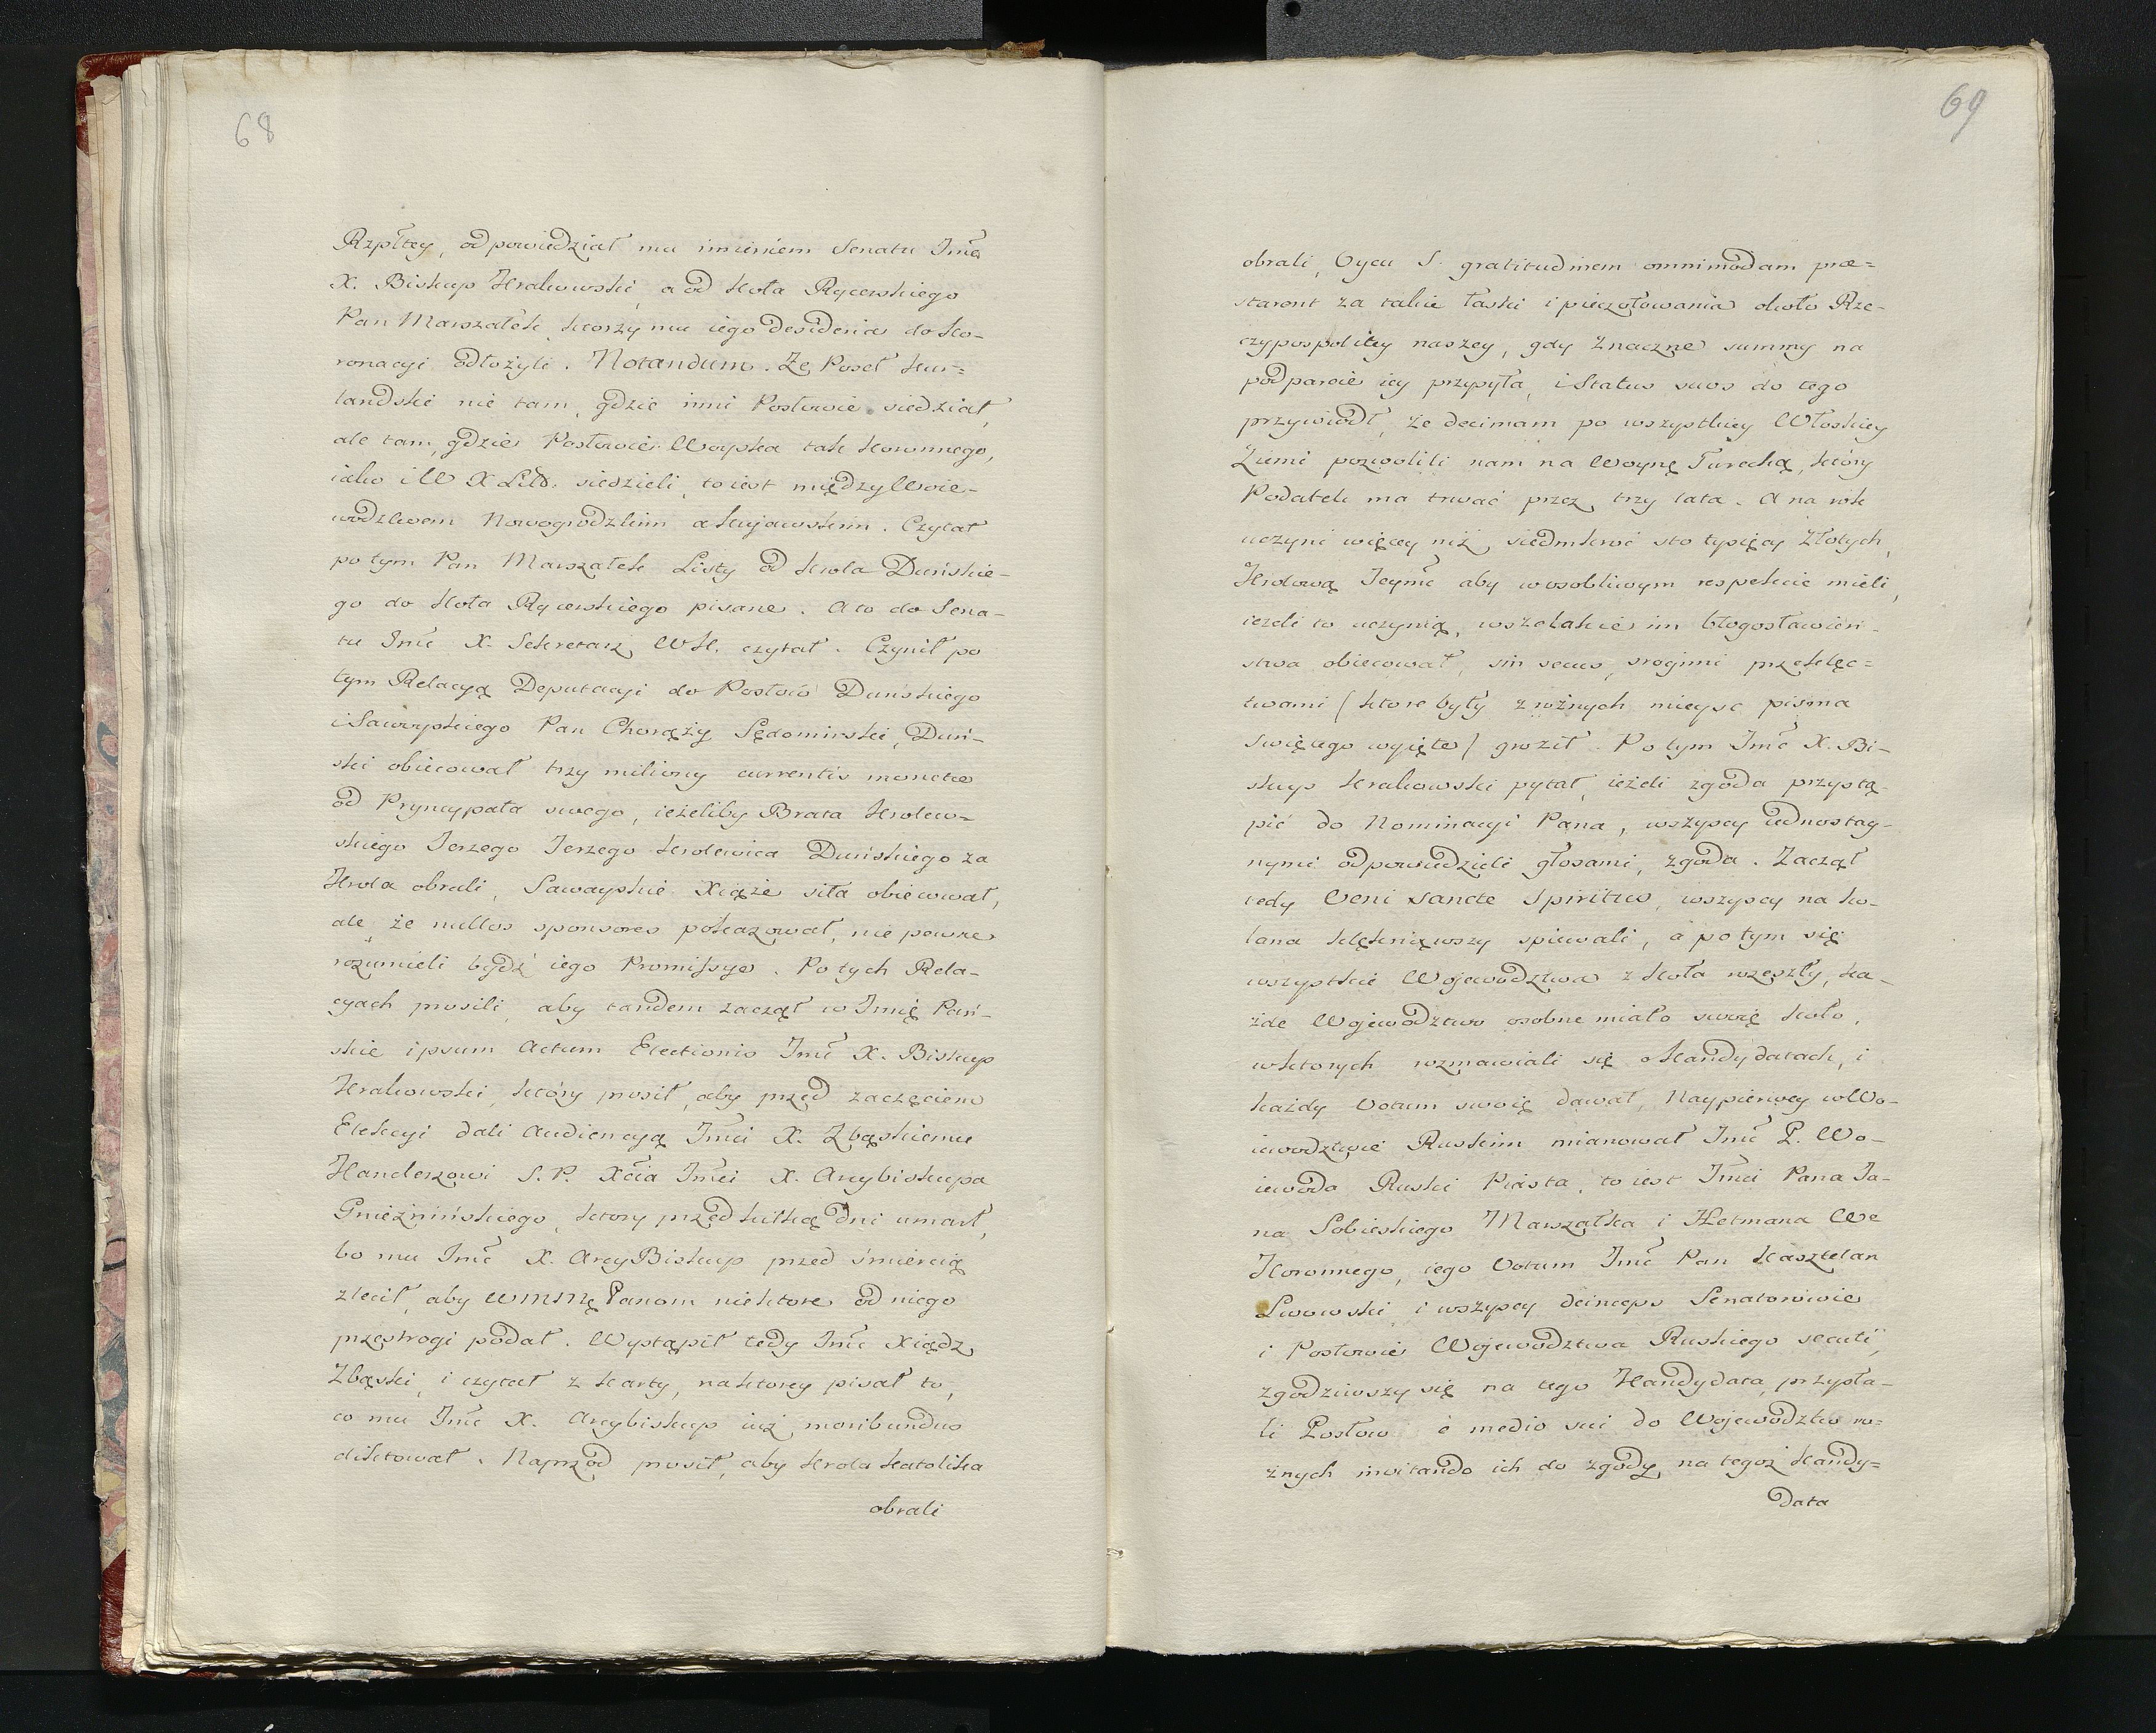 68
Rzpltey, odpowiedział mu imieniem Senatu Jmć
X. Biskup Krakowski, a od Koła Rycerskiego
Pan Marszałek, ktorzy mu iego desideria do Ko-
ronacyi odłożyli. Notandum. Ze Poseł Kur=
landski nie tam, gdzie inni Posłowie siedział,
ale tam, gdzie Posłowie Woyska tak Koronnego,
iako i W X Litt. siedzieli, to iest między Woie-
wodztwem Nowogrodzkim a Kujawskim. Czytał
po tym Pan Marszałek Listy od Krola Duńskie-
go do Koła Rycerskiego pisane. A to do Sena-
tu Jmć X. Sekretarz WK. czytał. Czynił po
tym Relacyą Deputacyi do Posłow Duńskiego
i Sawoyskiego Pan Chorąży Sędomirski, Duń-
ski obiecował trzy miliony currentis monetæ
od Pryncypała swego, ieżeliby Brata Krolew-
skiego Jerzego Jerzego Krolewica Duńskiego za
Krola obrali, Sawoyskie Xiąże siła obiecował,
ale że nullos sponsores pokazował, nie pewne
rozumieli bydź iego Promissye. Po tych Rela-
cyach prosili, aby tandem zaczął w Imię Pań-
skie ipsum Actum Electionis Jmć X. Biskup
Krakowski, który prosił, aby przed zaczęciem
Elekcyi dali Audiencyą Jmci X. Zbąskiemu
Kanclerzowi S. P. Xcia Jmci X. Arcybiskupa
Gnieźnińskiego, ktory przed kilką dni umarł,
bo mu Jmć X. ArcyBiskup przed śmiercią
zlecił, aby WMMę Panom niektore od niego
przestrogi podał. Wystąpił tedy Jmć Xiądz
Zbąski, i czytał z karty, na ktorey pisał to,
co mu Jmć X. Arcybiskup iuż moribundus
diktował. Naprzod prosił, aby Krola Katolika
obrali
69
obrali, Oycu S. gratitudinem omnimodam præ=
starent za takie łaski i pieczołowania około Rze-
czypospolitey naszey, gdy znaczne summy na
podparcie iey przysyła, i Status suos do tego
przywiodł, że decimam po wszystkiey Włoskiey
Ziemi pozwolili nam na Woynę Turecką, który
Podatek ma trwać przez trzy lata. A na rok
uczyni więcey niż siedmkroć sto tysięcy Złotych,
Krolową Jeymć aby w osobliwym respekcie mieli,
ieżeli to uczynią, wszelakie im błogosławień-
stwa obiecował, sin secus, srogimi przeklęc=
twami (ktore były z rożnych mieysc pisma
swiętego wyięte) groził. Po tym Jmć X. Bi-
skup Krakowski pytał, ieżeli zgoda przystą-
pić do Nominacyi Pana, wszyscy iednostay-
nymi odpowiedzieli głosami, zgoda. Zaczął
tedy Veni Sancte Spiritus, wszyscy na ko-
lana klęknąwszy spiewali, a po tym się
wszystkie Wojewodztwa z Koła rozeszły, ka-
żde Wojewodztwo osobne miało swoię Koło,
w ktorych rozmawiali się o Kandydatach, i
każdy Votum swoię dawał, Naypierwey w Wo-
iewodztwie Ruskim mianował Jmć P. Wo-
iewoda Ruski Piasta, to iest Jmci Pana Ja-
na Sobieskiego Marszałka i Hetmana We
Koronnego, iego Votum Jmć Pan Kasztelan
Lwowski, i wszyscy deinceps Senatorowie
i Posłowie Wojewodztwa Ruskiego secuti,
zgodziwszy się na tego Kandydata, przysła-
li Posłow è medio sui do Wojewodztw ro=
żnych invitando ich do zgody na tegoż Kandy=
data